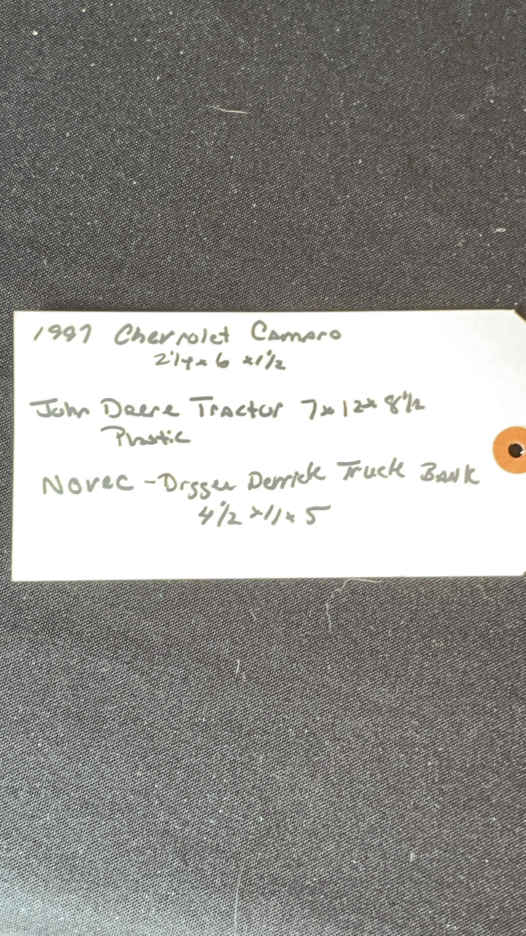 1997 Chevrolet Camaro
2 1/4 x 6 x 1 1/2
John Deere Tractor 7 x 12 x 8 1/2
Plastic
NOVEC - Digger Derrick Truck BANK
4 1/2 x 11 x 5